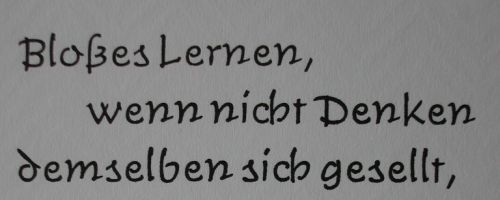 Bloßes Lernen,
wenn nicht Denken
demselben sich gesellt,